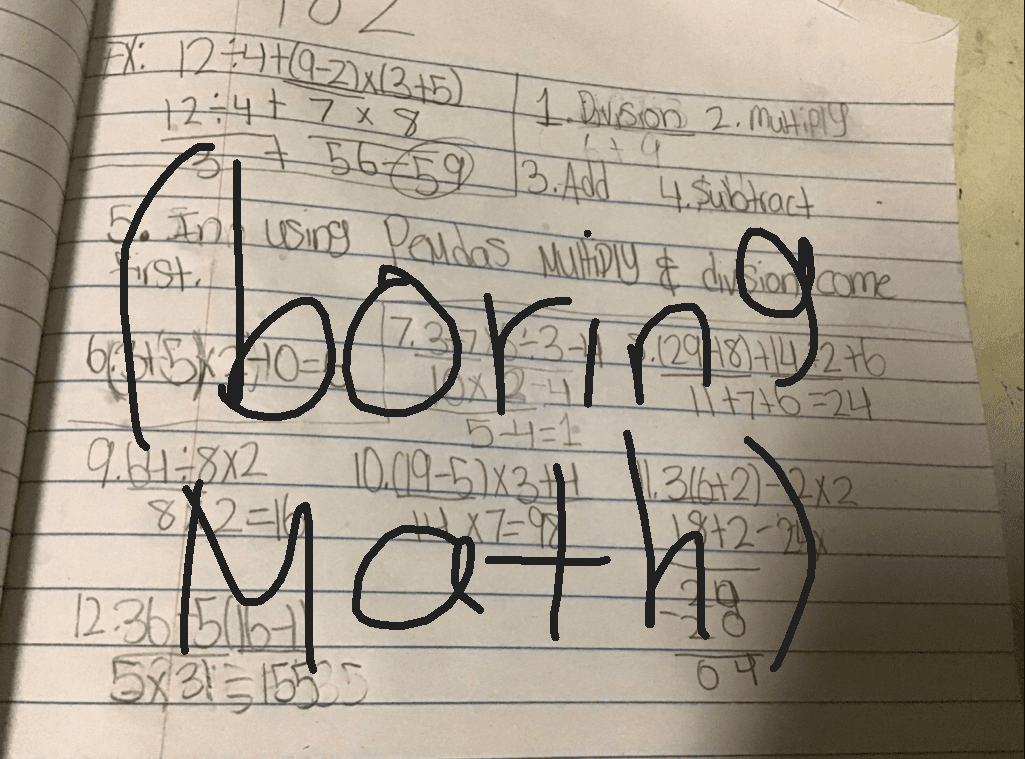 102
EX: 12÷4+(9-2)×(3+5)
12÷4+ 7 × 8
3 + 56=59
1. Division 2. Multiply
6+9
3. Add 4. Subtract
5. In using Pemdas Multiply & division come
first.
(boring
7.3
(29+18)+14÷2+6
11+7+6=24
5-4=1
9.64÷8×2
8×2=16
10.(19-5)×3+4
14×7=98
11.3(6+2)-2×2
18+2-
Math)
12.36-5(16-1)
5×31=155
64